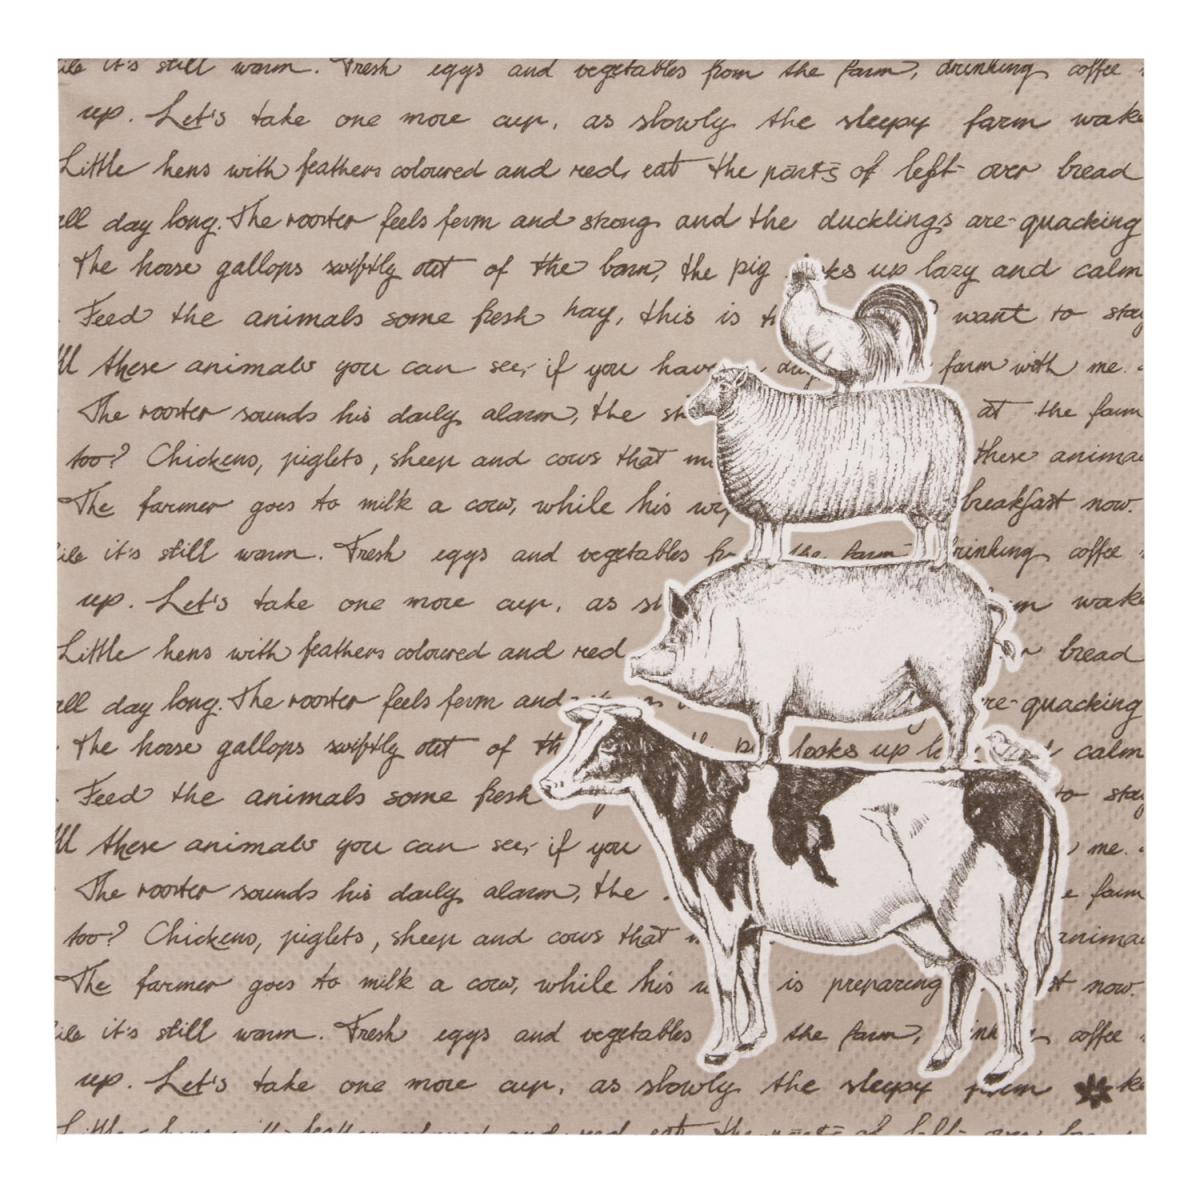 it's still warm. Fresh eggs and vegetables from the farm, drinking coffee
up. Let's take one more cup, as slowly the sleepy farm wake
Little hens with feathers coloured and red, eat the parts of left over bread
all day long. The rooster feels ferm and strong and the ducklings are quacking
The horse gallops swiftly out of the barn, the pig looks up lazy and calm
Feed the animals some fresh hay, this is want to stay
All these animals you can see, if you have farm with me.
The rooster sounds his daily alarm, the at the farm
too? Chickens, piglets, sheep and cows that these anima
The farmer goes to milk a cow, while his breakfast now.
it's still warm. Fresh eggs and vegetables the farm drinking coffee
up. Let's take one more cup, as wake
Little hens with feathers coloured and red bread
all day long. The rooster feels ferm and are quacking
The horse gallops swiftly out of looks up calm
Feed the animals some fresh to stay
All these animals you can see, if you me.
The rooster sounds his daily alarm, the farm
too? Chickens, piglets, sheep and cows that anima
The farmer goes to milk a cow, while his is preparing now.
it's still warm. Fresh eggs and vegetables the farm, coffee
up. Let's take one more cup, as slowly the sleepy farm